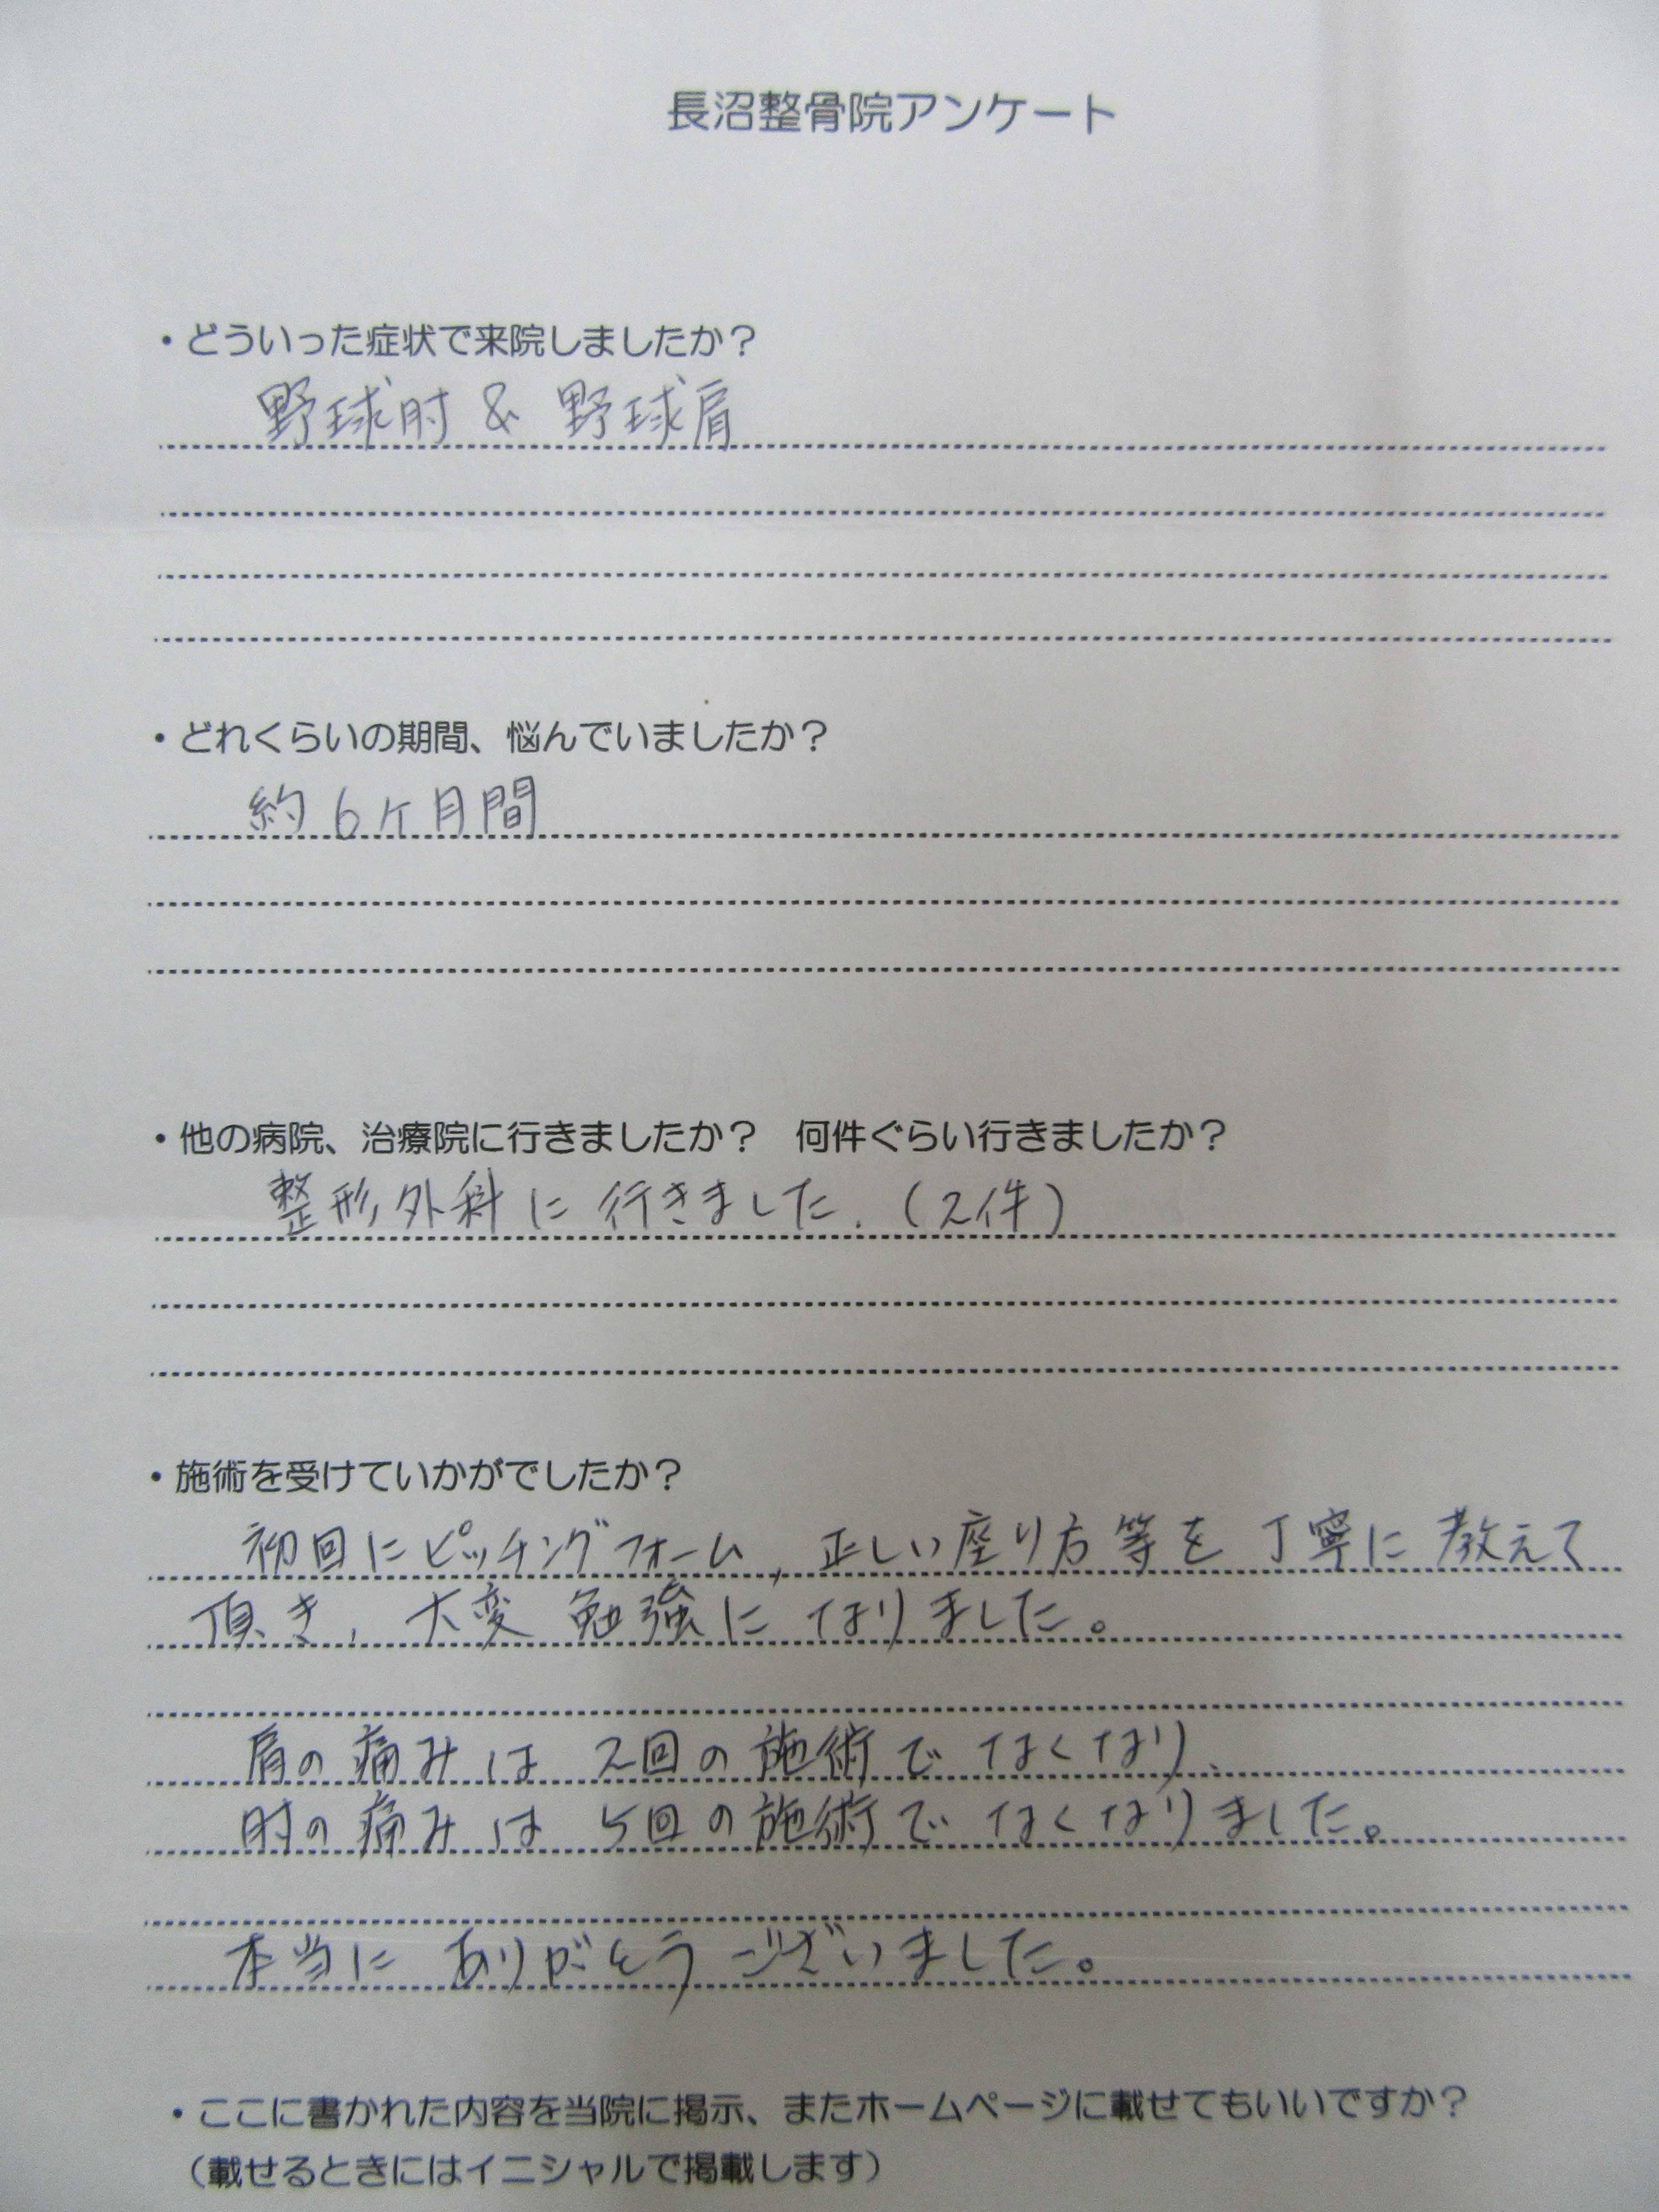 長沼整骨院アンケート
・どういった症状で来院しましたか？
野球肘 & 野球肩
・どれくらいの期間、悩んでいましたか？
約6ケ月間
・他の病院、治療院に行きましたか？　何件ぐらい行きましたか？
整形外科に行きました.（2件）
・施術を受けていかがでしたか？
初回にピッチングフォーム, 正しい座り方等を丁寧に教えて
頂き, 大変勉強になりました。
肩の痛みは 2回の施術でなくなり、
肘の痛みは 5回の施術でなくなりました。
本当にありがとうございました。
・ここに書かれた内容を当院に掲示、またホームページに載せてもいいですか？
（載せるときにはイニシャルで掲載します）